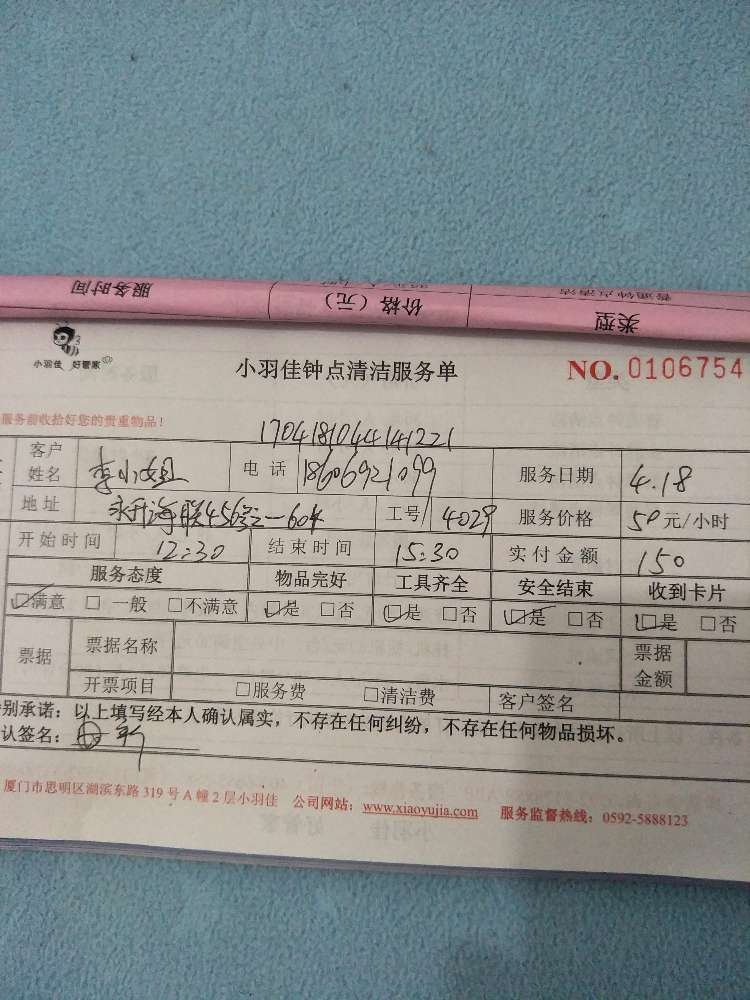 服务时间
价格（元）
类型
普通钟点清洁
小羽佳 好管家
小羽佳钟点清洁服务单
NO. 0106754
服务前收拾好您的贵重物品！
17041810444141221
客户姓名 李小姐 电话 18606921099 服务日期 4.18
地址 永升海联456号之一604 工号 4029 服务价格 50元/小时
开始时间 12:30 结束时间 15:30 实付金额 150
服务态度 物品完好 工具齐全 安全结束 收到卡片
☑满意 □一般 □不满意 ☑是 □否 ☑是 □否 ☑是 □否 ☑是 □否
票据 票据名称 票据金额
开票项目 □服务费 □清洁费 客户签名
别承诺：以上填写经本人确认属实，不存在任何纠纷，不存在任何物品损坏。
认签名：
厦门市思明区湖滨东路319号A幢2层小羽佳 公司网站：www.xiaoyujia.com 服务监督热线：0592-5888123